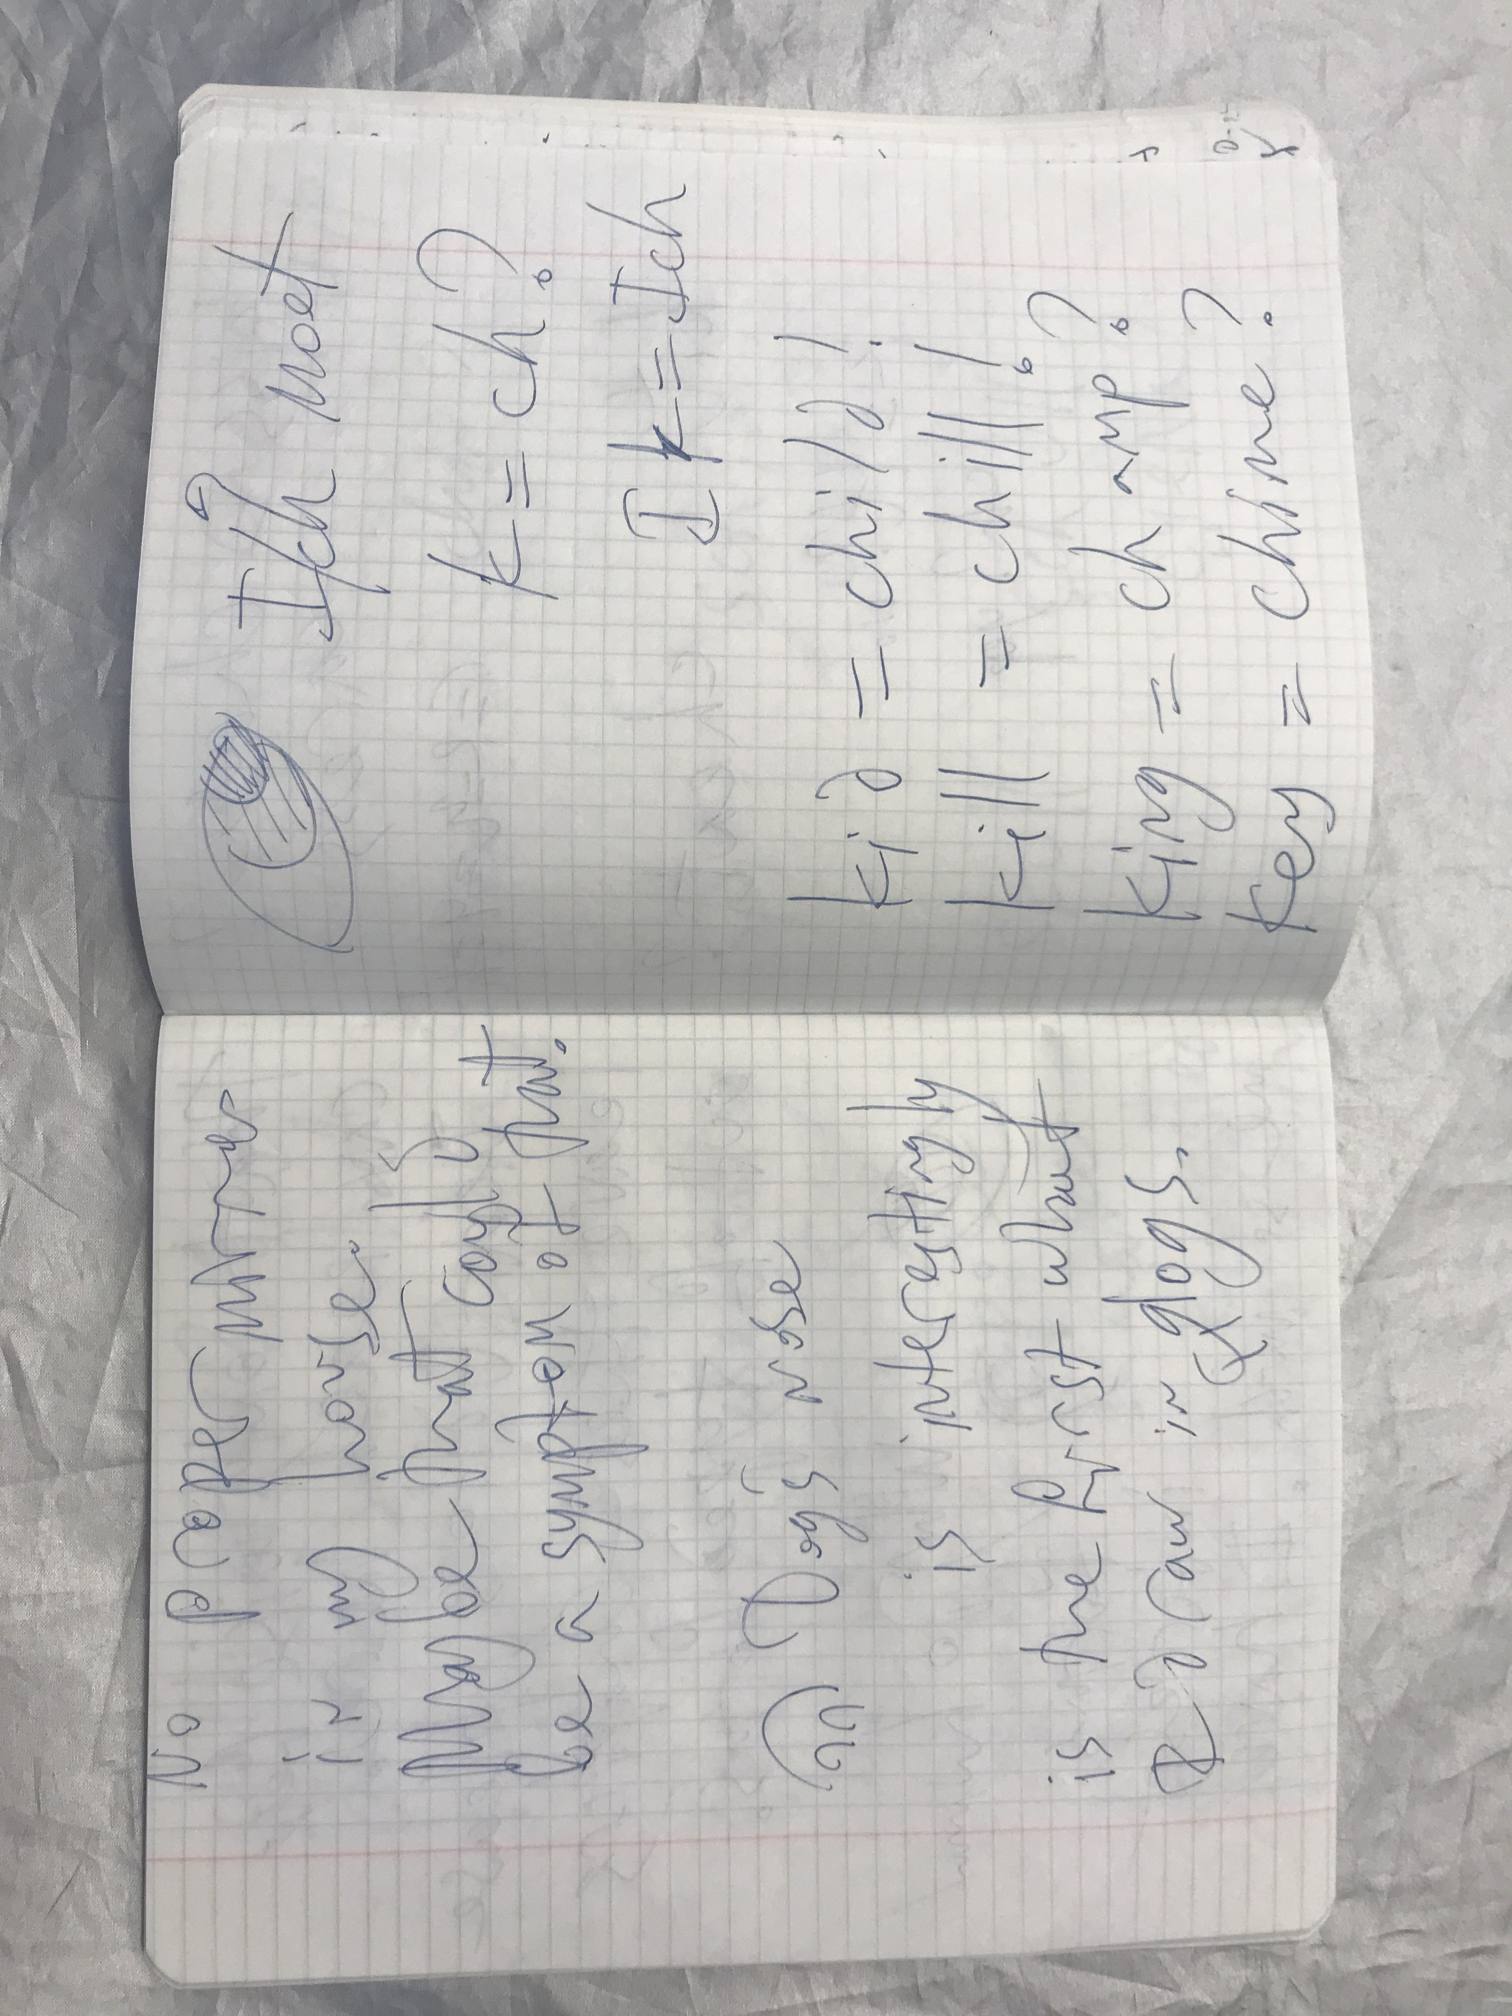 No proper mirror
in my house.
Maybe that could
be a symptom of that.
Dog's nose
is interestingly
is the first what
I draw in dogs.
moet
k = ch?
Ik = Ich
kid = child!
kill = chill!
king = champ?
key = chime?